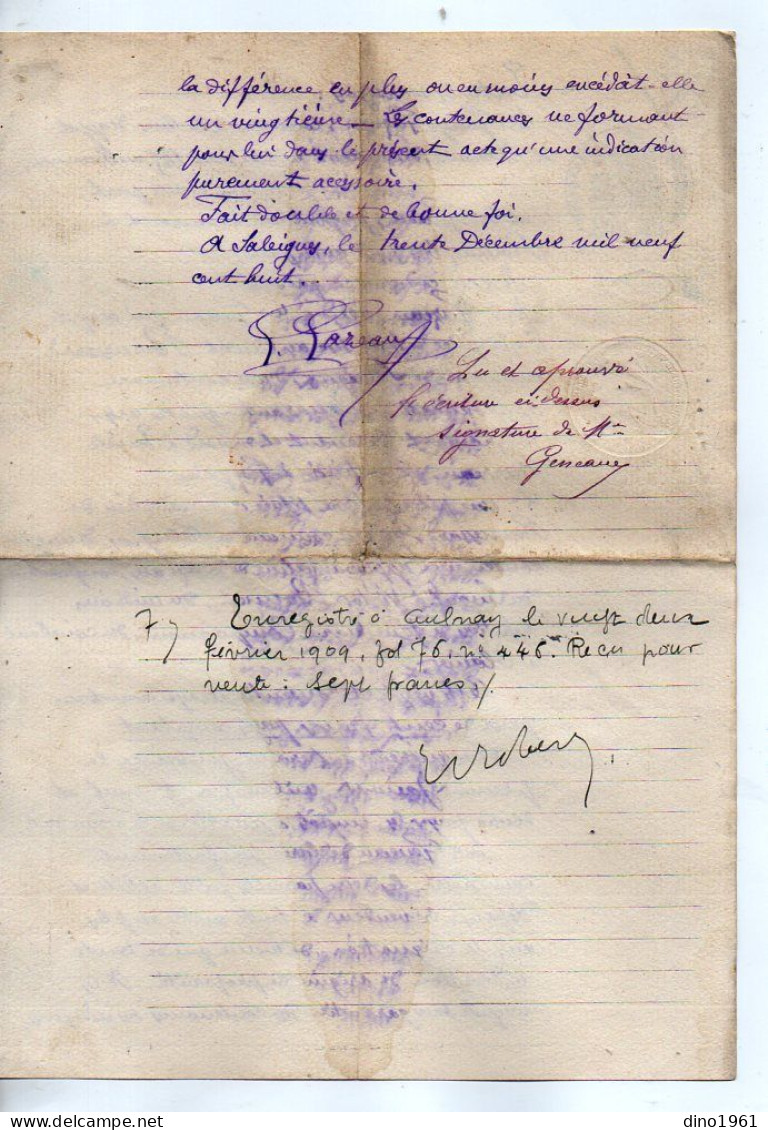 la différence en plus ou en moins excédât-elle
un vingtième - Les contenances ne formant
pour lui dans le présent acte qu'une indication
purement accessoire.
Fait double et de bonne foi.
A Saleignes, le trente Décembre mil neuf
cent huit.
Lu et aprouvé
l'écriture ci dessus
signature de Mr
7) Enregistré à Aulnay le vingt deux
février 1909, fol 76, no 446. Reçu pour
vente: sept francs./.
dino1961